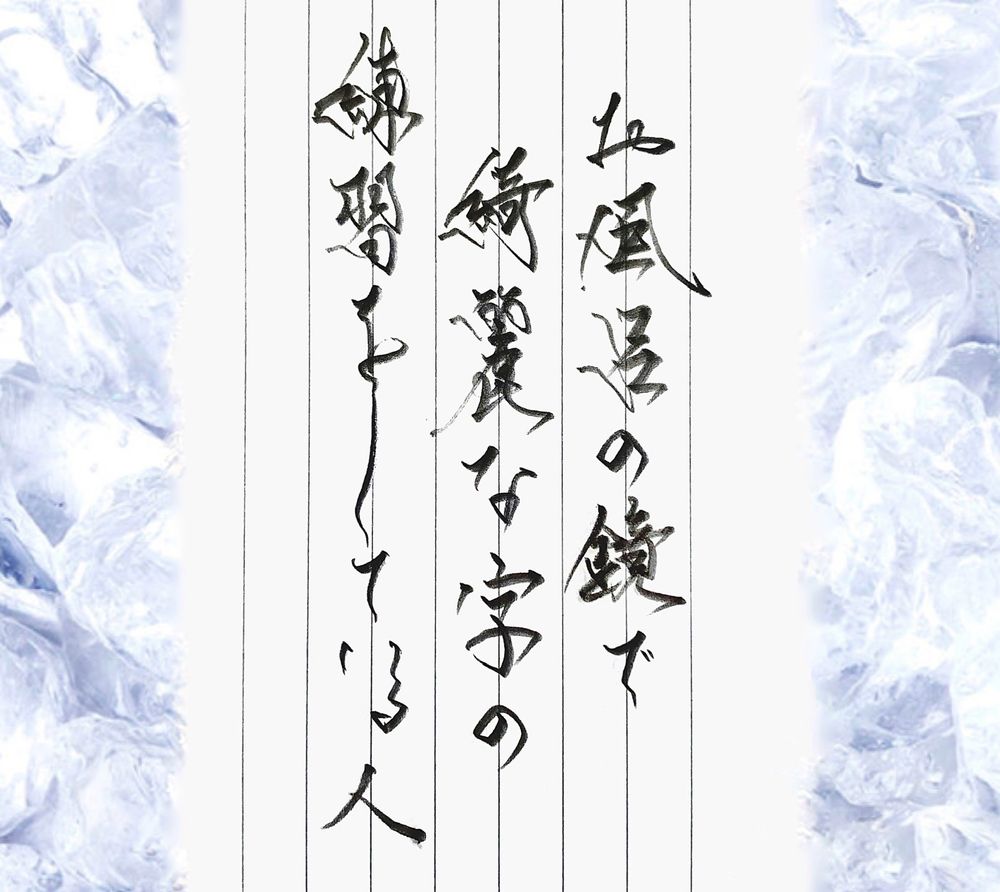 お風呂の鏡で
綺麗な字の
練習をしている人